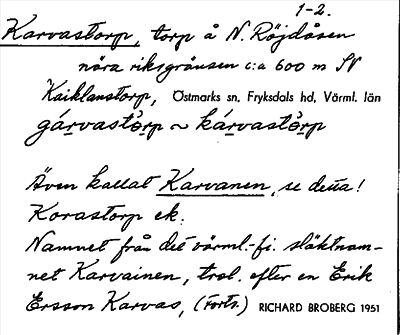 1-2.
Karvastorp, torp å N. Röjdåsen
nära riksgränsen c:a 600 m SV
Kaiklanstorp, Östmarks sn, Fryksdals hd, Värml. län
gárvastòrp ~ kárvastòrp
Även kallat Karvanen, se detta!
Korastorp ek.
Namnet från det värml.-fi. släktnam-
net Karvainen, trol. efter en Erik
Ersson Karvas, (Forts.) RICHARD BROBERG 1951